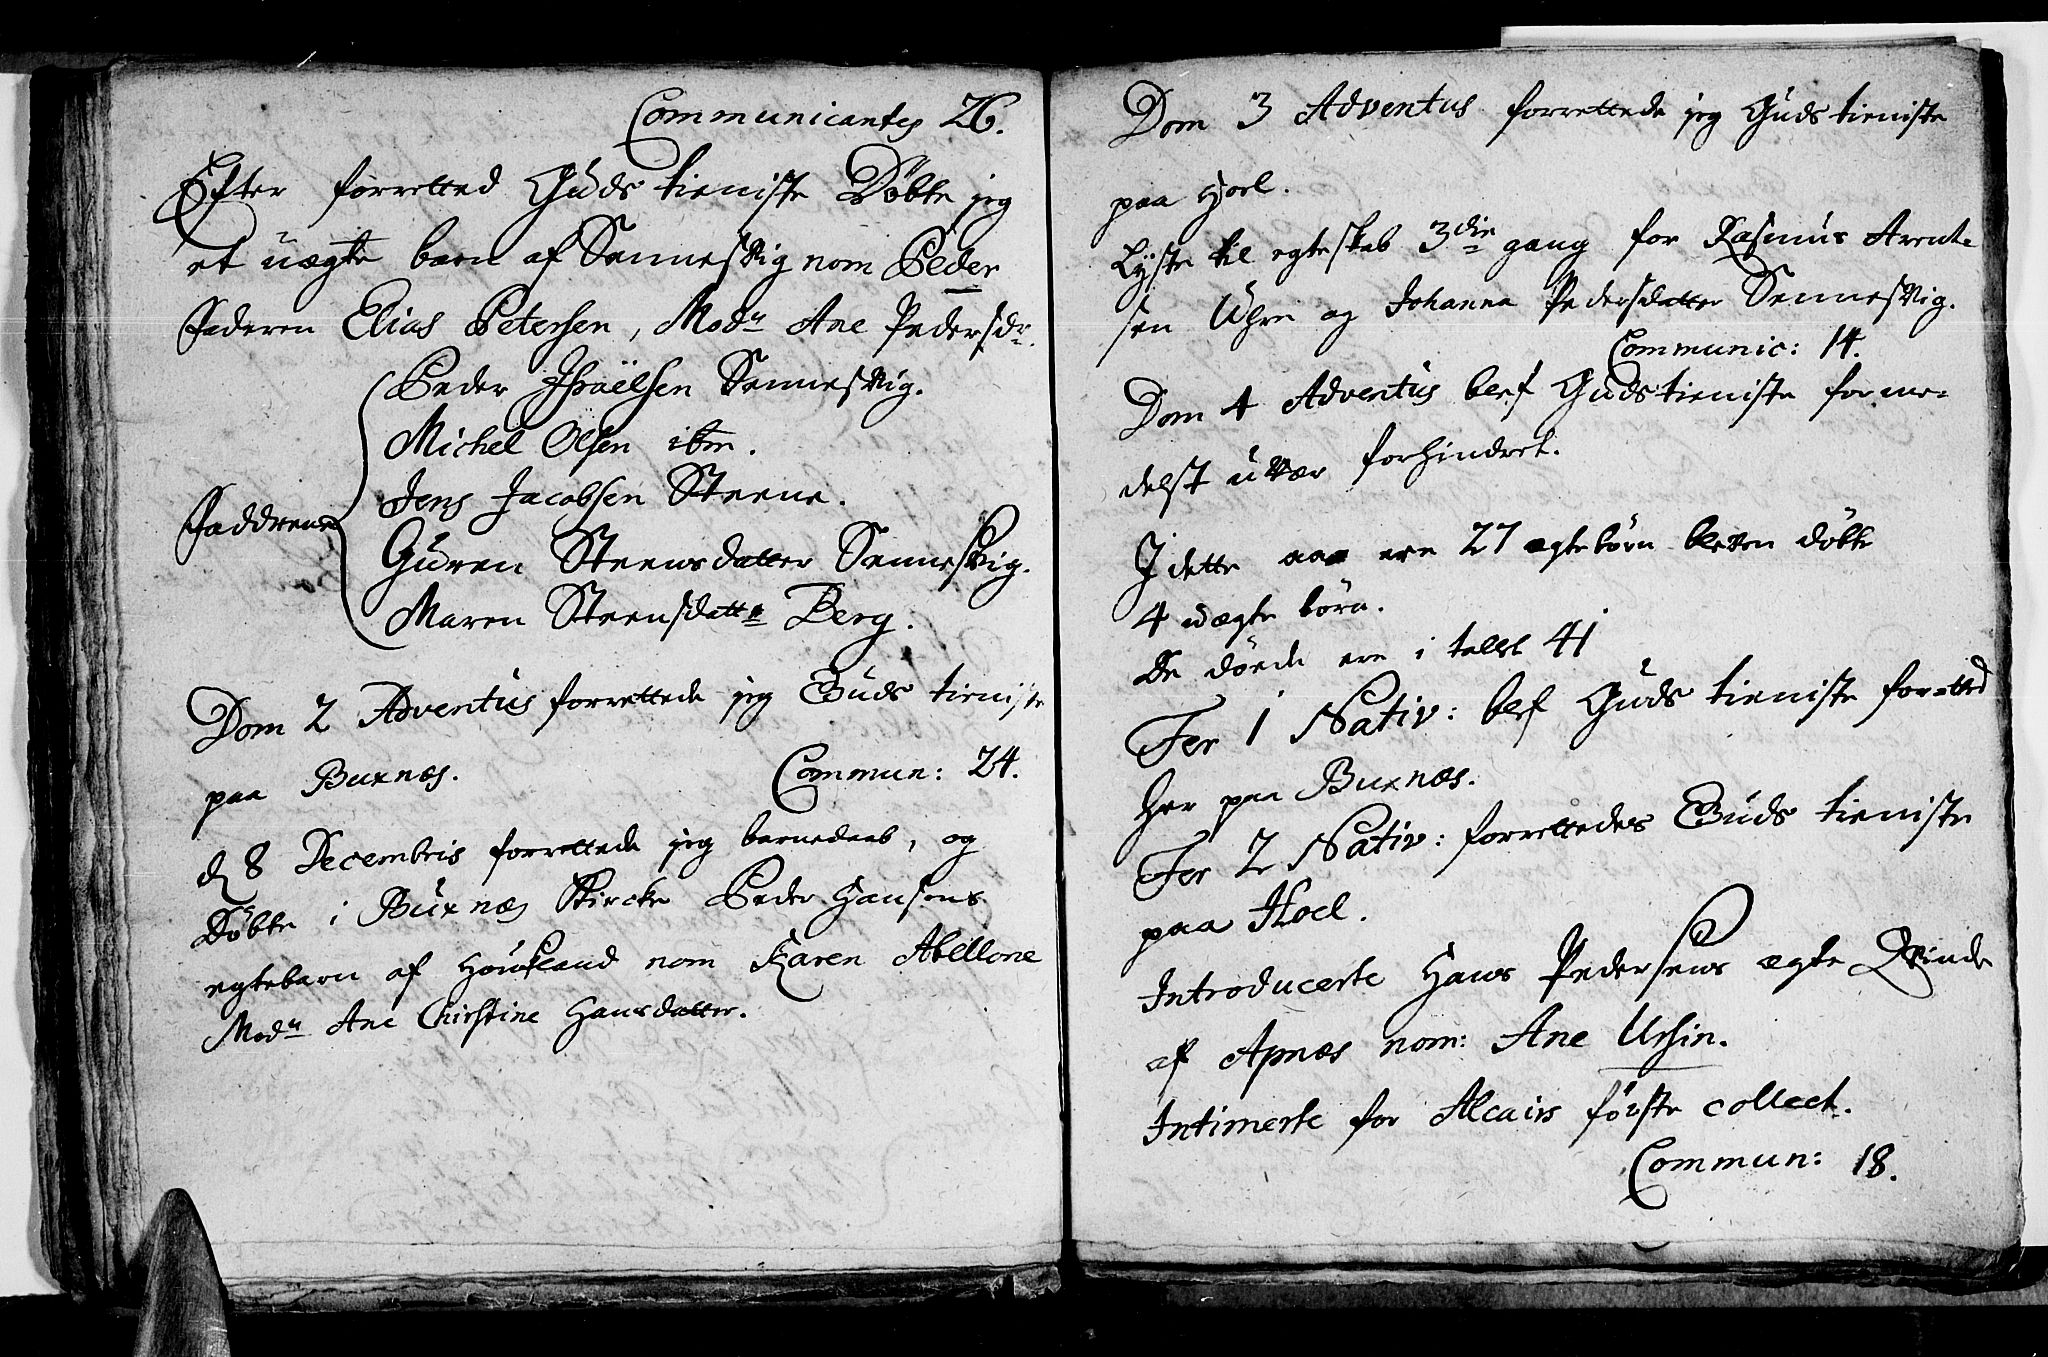 Communicantes 26.
Efter forretted Guds tieniste Döbte jeg
et uægte barn af Sennesvig nom Peder
Faderen Elias Petersen, Mod:n Ane Pedersdr.
Peder Israëlsen Sennesvig.
Michel Olsen ibm.
Jens Jacobsen Steene.
Faddrene
Guren Steensdatter Sennesvig.
Maren Steensdatt: Berg.
Dom 2 Adventus forrettede jeg Guds tieniste
paa Buxnæs. Commun: 24.
d 8 Decembris forrettede jeg barnedaab, og
Döbte i Buxnæs Kircke Peder Hansens
egtebarn af Houkland nom Karen Abellone
Mod:n Ane Christine Hansdatter.
Dom 3 Adventus forrettede jeg Guds tieniste
paa Hoel.
Lyste til egteskab 3die gang for Rasmus Arent-
sen Uhre og Johanna Pedersdatter Sennesvig.
Communic: 14.
Dom 4 Adventus blef Guds tieniste forme-
delst uvær forhindret.
I dette aar ere 27 ægte börn bleven döbte
4 uægte börn.
De döede ere i tallet 41
Fer 1 Nativ: blef Guds tieniste forretted
her paa Buxnæs.
Fer 2 Nativ: forrettedes Guds tieniste
paa Hoel.
Introducerte Hans Pedersens ægte Qvinde
af Apnæs nom: Ane Ursin.
Intimerte for Alcairs förste collect.
Commun: 18.